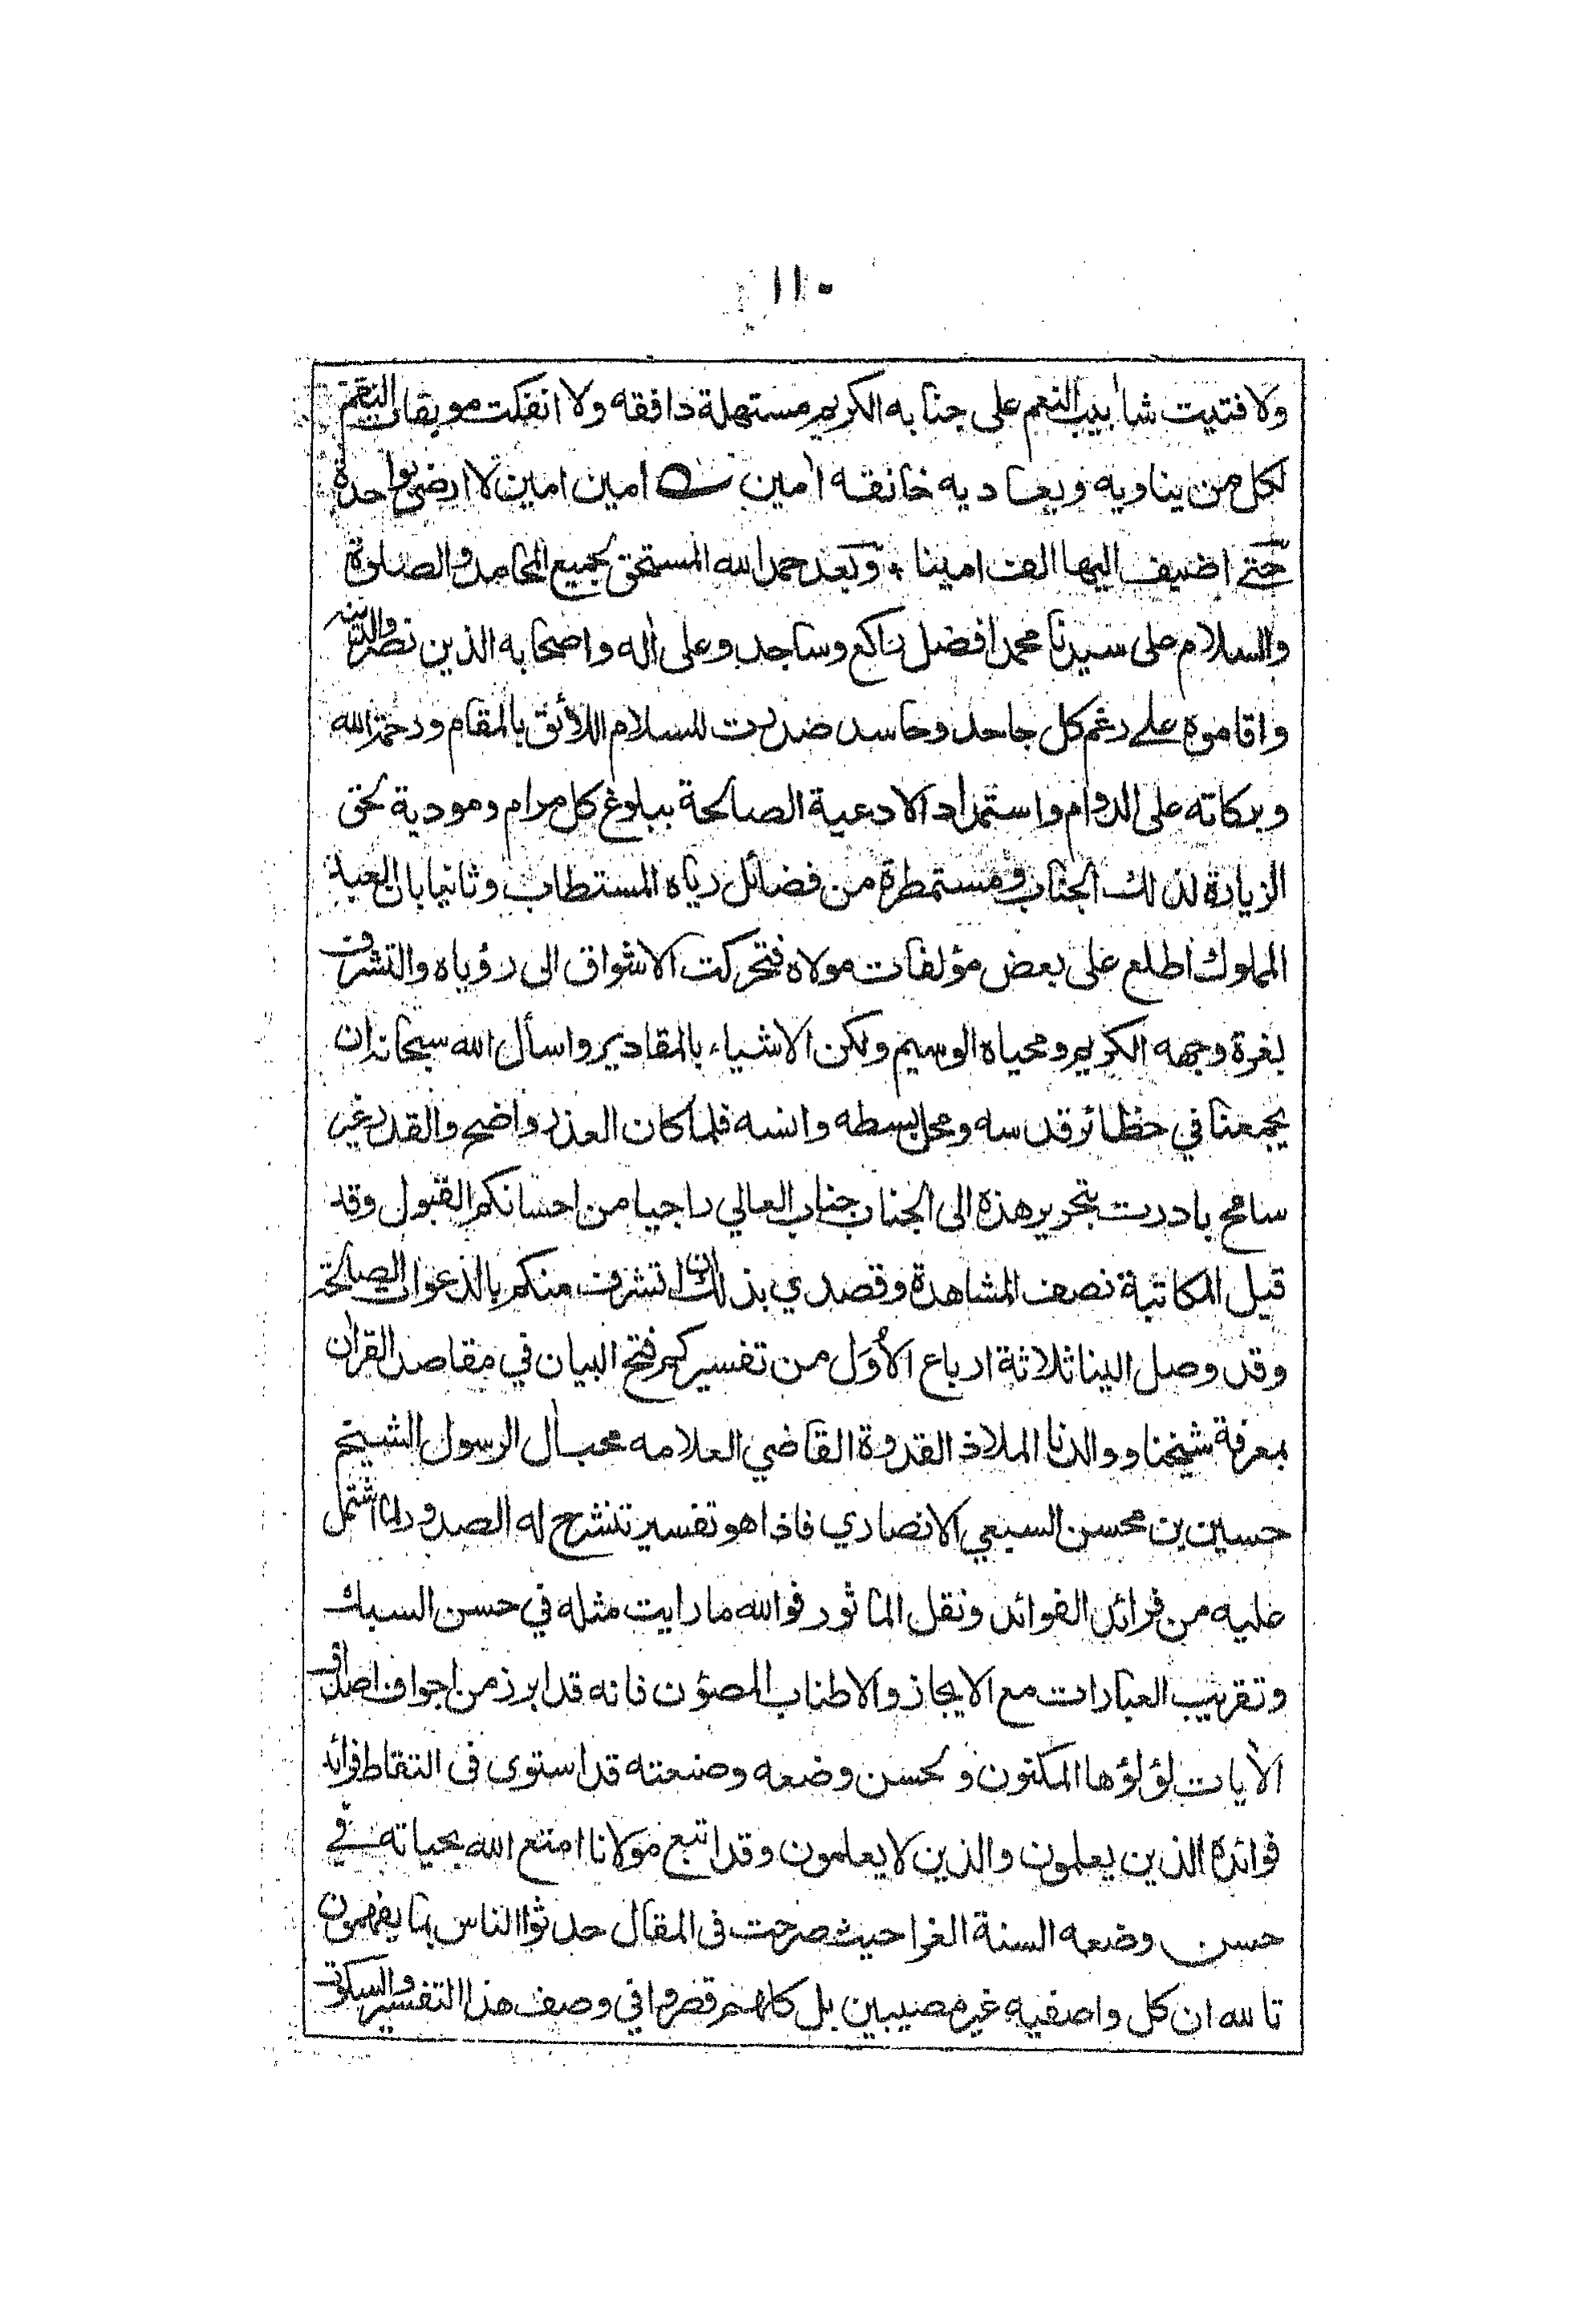 ١١٠
ولا فتيت شآبيب النعم على جنابه الكريم مستهلة دافقه ولا انفكت موبقات النقم
لكل من يناويه ويعاديه خانقه اٰمين امين امين لا ارضى بواحدة
حتى اضيف اليها الف امينا ٭ وبعد حمد الله المستحق لجميع المحامد والصلوة
والسلام على سيدنا محمد افضل راكع وساجد وعلى اٰله واصحابه الذين نصروا الدين
واقاموه على رغم كل جاحد وحاسد صدرت للسلام اللائق بالمقام ورحمة الله
وبركاته على الدوام واستمداد الادعية الصالحة ببلوغ كل مرام ومودية لحق
الزيارة لذلك الجناب ومستمطرة من فضائل رياه المستطاب وثانيا بان العبد
المملوك اطلع على بعض مؤلفات مولاه فتحركت الاشواق الى رؤياه والتشرف
بغرة وجهه الكريم ومحياه الوسيم ولكن الاشياء بالمقادير واسأل الله سبحانه ان
يجمعنا في حظائر قدسه ومحل بسطه وانسه فلما كان العذر واضح والقدر غير
سامح بادرت بتحرير هذه الى الجناب جناب العالي راجيا من احسانكم القبول وقد
قيل المكاتبة نصف المشاهدة وقصدي بذلك ان اتشرف منكم بالدعوات الصالحة
وقد وصل الينا ثلاثة ارباع الأُوَل من تفسيركم فتح البيان في مقاصد القراٰن
بمعرفة شيخنا ووالدنا الملاذ القدوة القاضي العلامه محب اٰل الرسول الشيخ
حسين بن محسن السبعي الانصاري فاذا هو تفسير تنشرح له الصدور لما اشتمل
عليه من فرائد الفوائد ونقل الماثور فوالله ما رايت مثله في حسن السبك
وتقريب العبارات مع الايجاز والاطناب المصؤن فانه قد ابرز من اجواف اصداف
الاٰيات لؤلؤها المكنون و بحسن وضعه وصنعته قد استوى فى التقاط فوائد
فوائده الذين يعلمون والذين لا يعلمون وقد اتبع مولانا امتع الله بحياته في
حسن وضعه السنة الغرا حيث صرحت فى المقال حدثوا الناس بما يفهمون
تالله ان كل واصفيه غير مصيبين بل كلهم قصروا في وصف هذا التفسير والسكوت